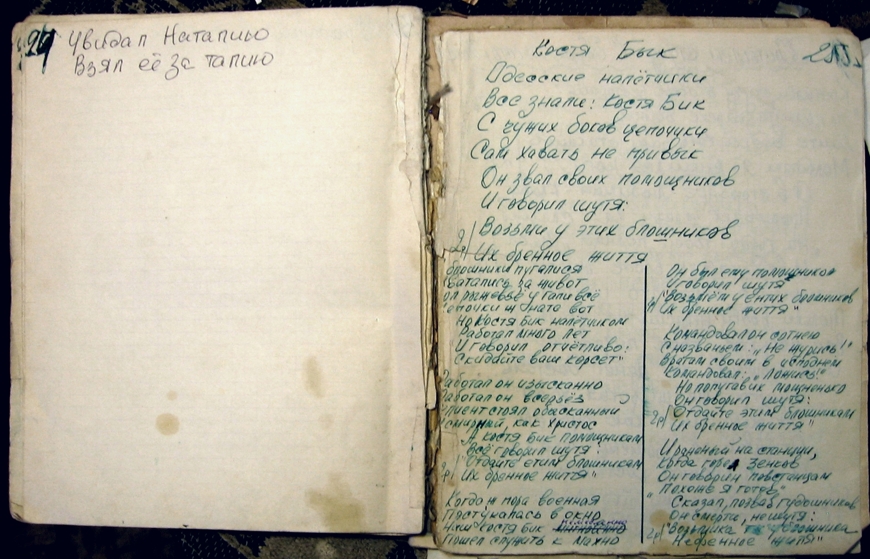 294
Увидал Наташью
Взял её за талию
Костя Бык
Одесские налётчики
Все знали: Костя Бик
С чужих боков цепочики
Сам хавать не привык
Он звал своих помощников
И говорил шутя:
Возьми у этих блошников
Их бренное життя
блошники пугалися
ватались за живот
Но Костя Бик налётчиком
Работал много лет
И говорил отчётливо:
Скидайте ваш корсет"
аботал он изысканно
аботал он всерьёз
лиент стоял обысканный
мирный, как Христос
А Костя Бик помощникам
Всё говорил шутя:
"Отдайте етим блошникам
Их бренное життя"
Когда ж пора военная
Постучалась в окно
Наш Костя Бик немедленно
Пошел служить к Махно
Он был ему помощником
И говорил шутя
"Возьмём у ентих блошников
Их бренное життя"
Командовал он сотнею
С названьем: „Не журись!"
Врагам своим в исподнем
Командовал: „Ложись!"
Но попугавик мощненько
Он говорил шутя:
"Отдайте этим блошникам
Их бренное життя"
И раненый на станции,
Когда горел Зенков
Он говорил повстанцам
"Похоже я готов"
Сказал, позвав гудошников
Он смерти, не шутя:
"Возьми-ка блошника
Нефенное житя"